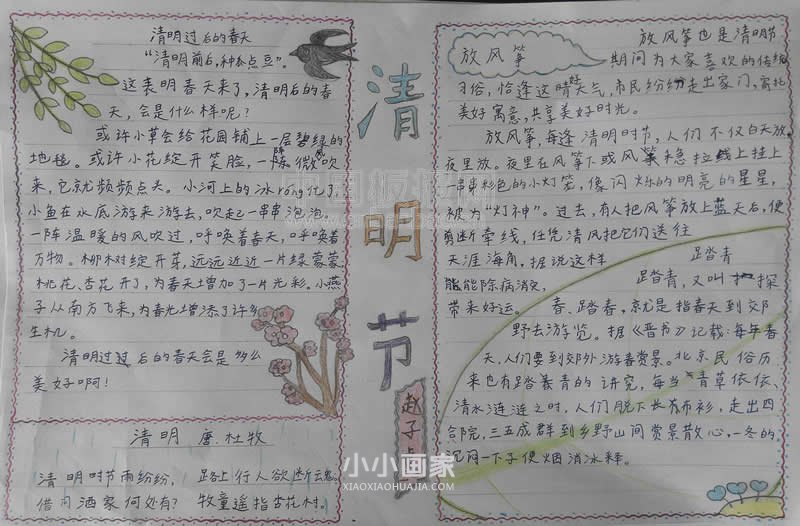 清明过后的春天
“清明前后,种瓜点豆”。
这表明春天来了,清明后的春
天,会是什么样呢?
或许小草会给花园铺上一层碧绿的
地毯。或许小花绽开笑脸,一阵微风吹
来,它就频频点头。小河上的冰róng化了,
小鱼在水底游来游去,吹起一串串泡泡。
一阵温暖的风吹过,呼唤着春天,呼唤着
万物。柳树绽开芽,远远近近一片绿蒙蒙
桃花、杏花开了,为春天增加了一片光彩。小燕
子从南方飞来,为春光增添了许多
生机。
清明过过后的春天会是多么
美好啊!
清明 唐 杜牧
清明时节雨纷纷, 路上行人欲断
借问酒家何处有? 牧童遥指杏花村。
清
明
节
赵子
放风筝
放风筝也是清明节
期间为大家喜欢的传统
习俗,恰逢这晴好天气,市民纷纷走出家门,寄托
美好寓意,共享美好时光。
放风筝,每逢清明时节,人们不仅白天放,
夜里放。夜里在风筝下或风筝稳拉线上挂上
一串串彩色的小灯笼,像闪烁的明亮的星星,
被为“灯神”。过去,有人把风筝放上蓝天后,便
剪断牵线,任凭清风把它们送往
天涯海角,据说这样
能能除病消灾,
带来好运。
踏青
踏青,又叫探
春、踏春,就是指春天到郊
野去游览。据《晋书》记载:每年春
天,人们要到郊外游春赏景。北京民俗历
来也有踏青的讲究,每当青草依依、
清水涟涟之时,人们脱下长布衫,走出四
合院,三五成群到乡野山间赏景散心,一冬的
沉闷一下子便烟消冰释。
小小画家
XIAOXIAOHUAJIA.COM